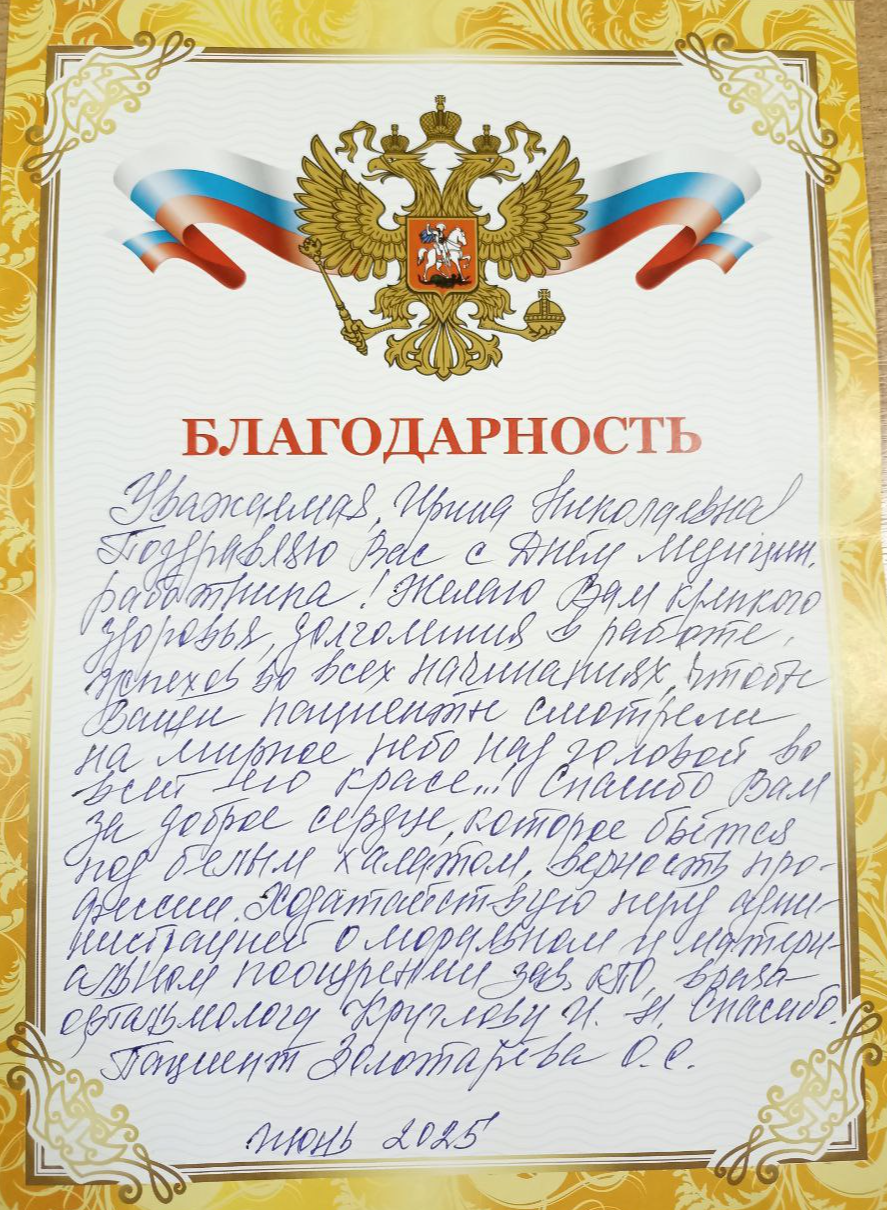 БЛАГОДАРНОСТЬ
Уважаемая, Ирина Николаевна!
Поздравляю Вас с Днём медицин.
работника! Желаю Вам крепкого
здоровья, долголетия в работе,
успехов во всех начинаниях, чтобы
Ваши пациенты смотрели
на мирное небо над головой во
всей его красе...! Спасибо Вам
за доброе сердце, которое бьётся
под белым халатом, верность про-
фессии. Ходатайствую перед админи-
нистрацией о моральном и матери-
альном поощрении зав. КПО, врача-
офтальмолога Круглову И. Н. Спасибо.
Пациент Золотарёва О.С.
июнь 2025